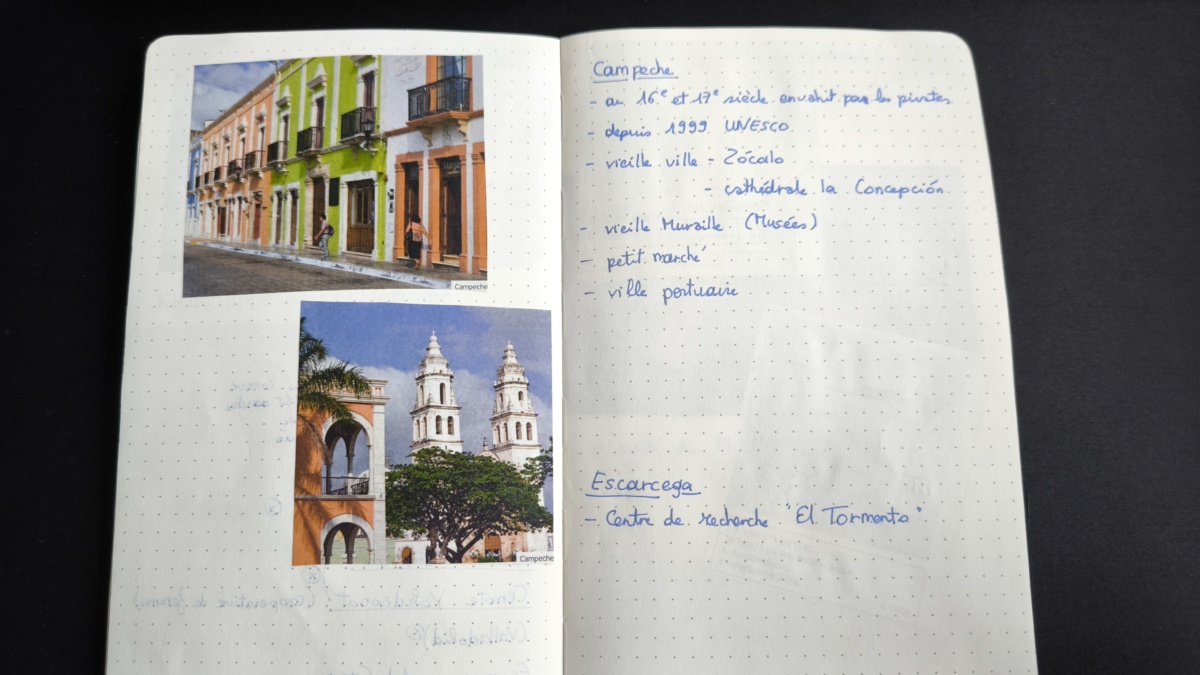 Campeche
Campeche
Campeche
- au 16e et 17e siècle envahit par les pirates
- depuis 1999 UNESCO
- vieille ville - Zócalo
- cathédrale la Concepción
- vieille Muraille (Musées)
- petit marché
- ville portuaire
Escarcega
- Centre de recherche "El Tormento"
Cenote (coopérative de femmes)
(Valladolid)